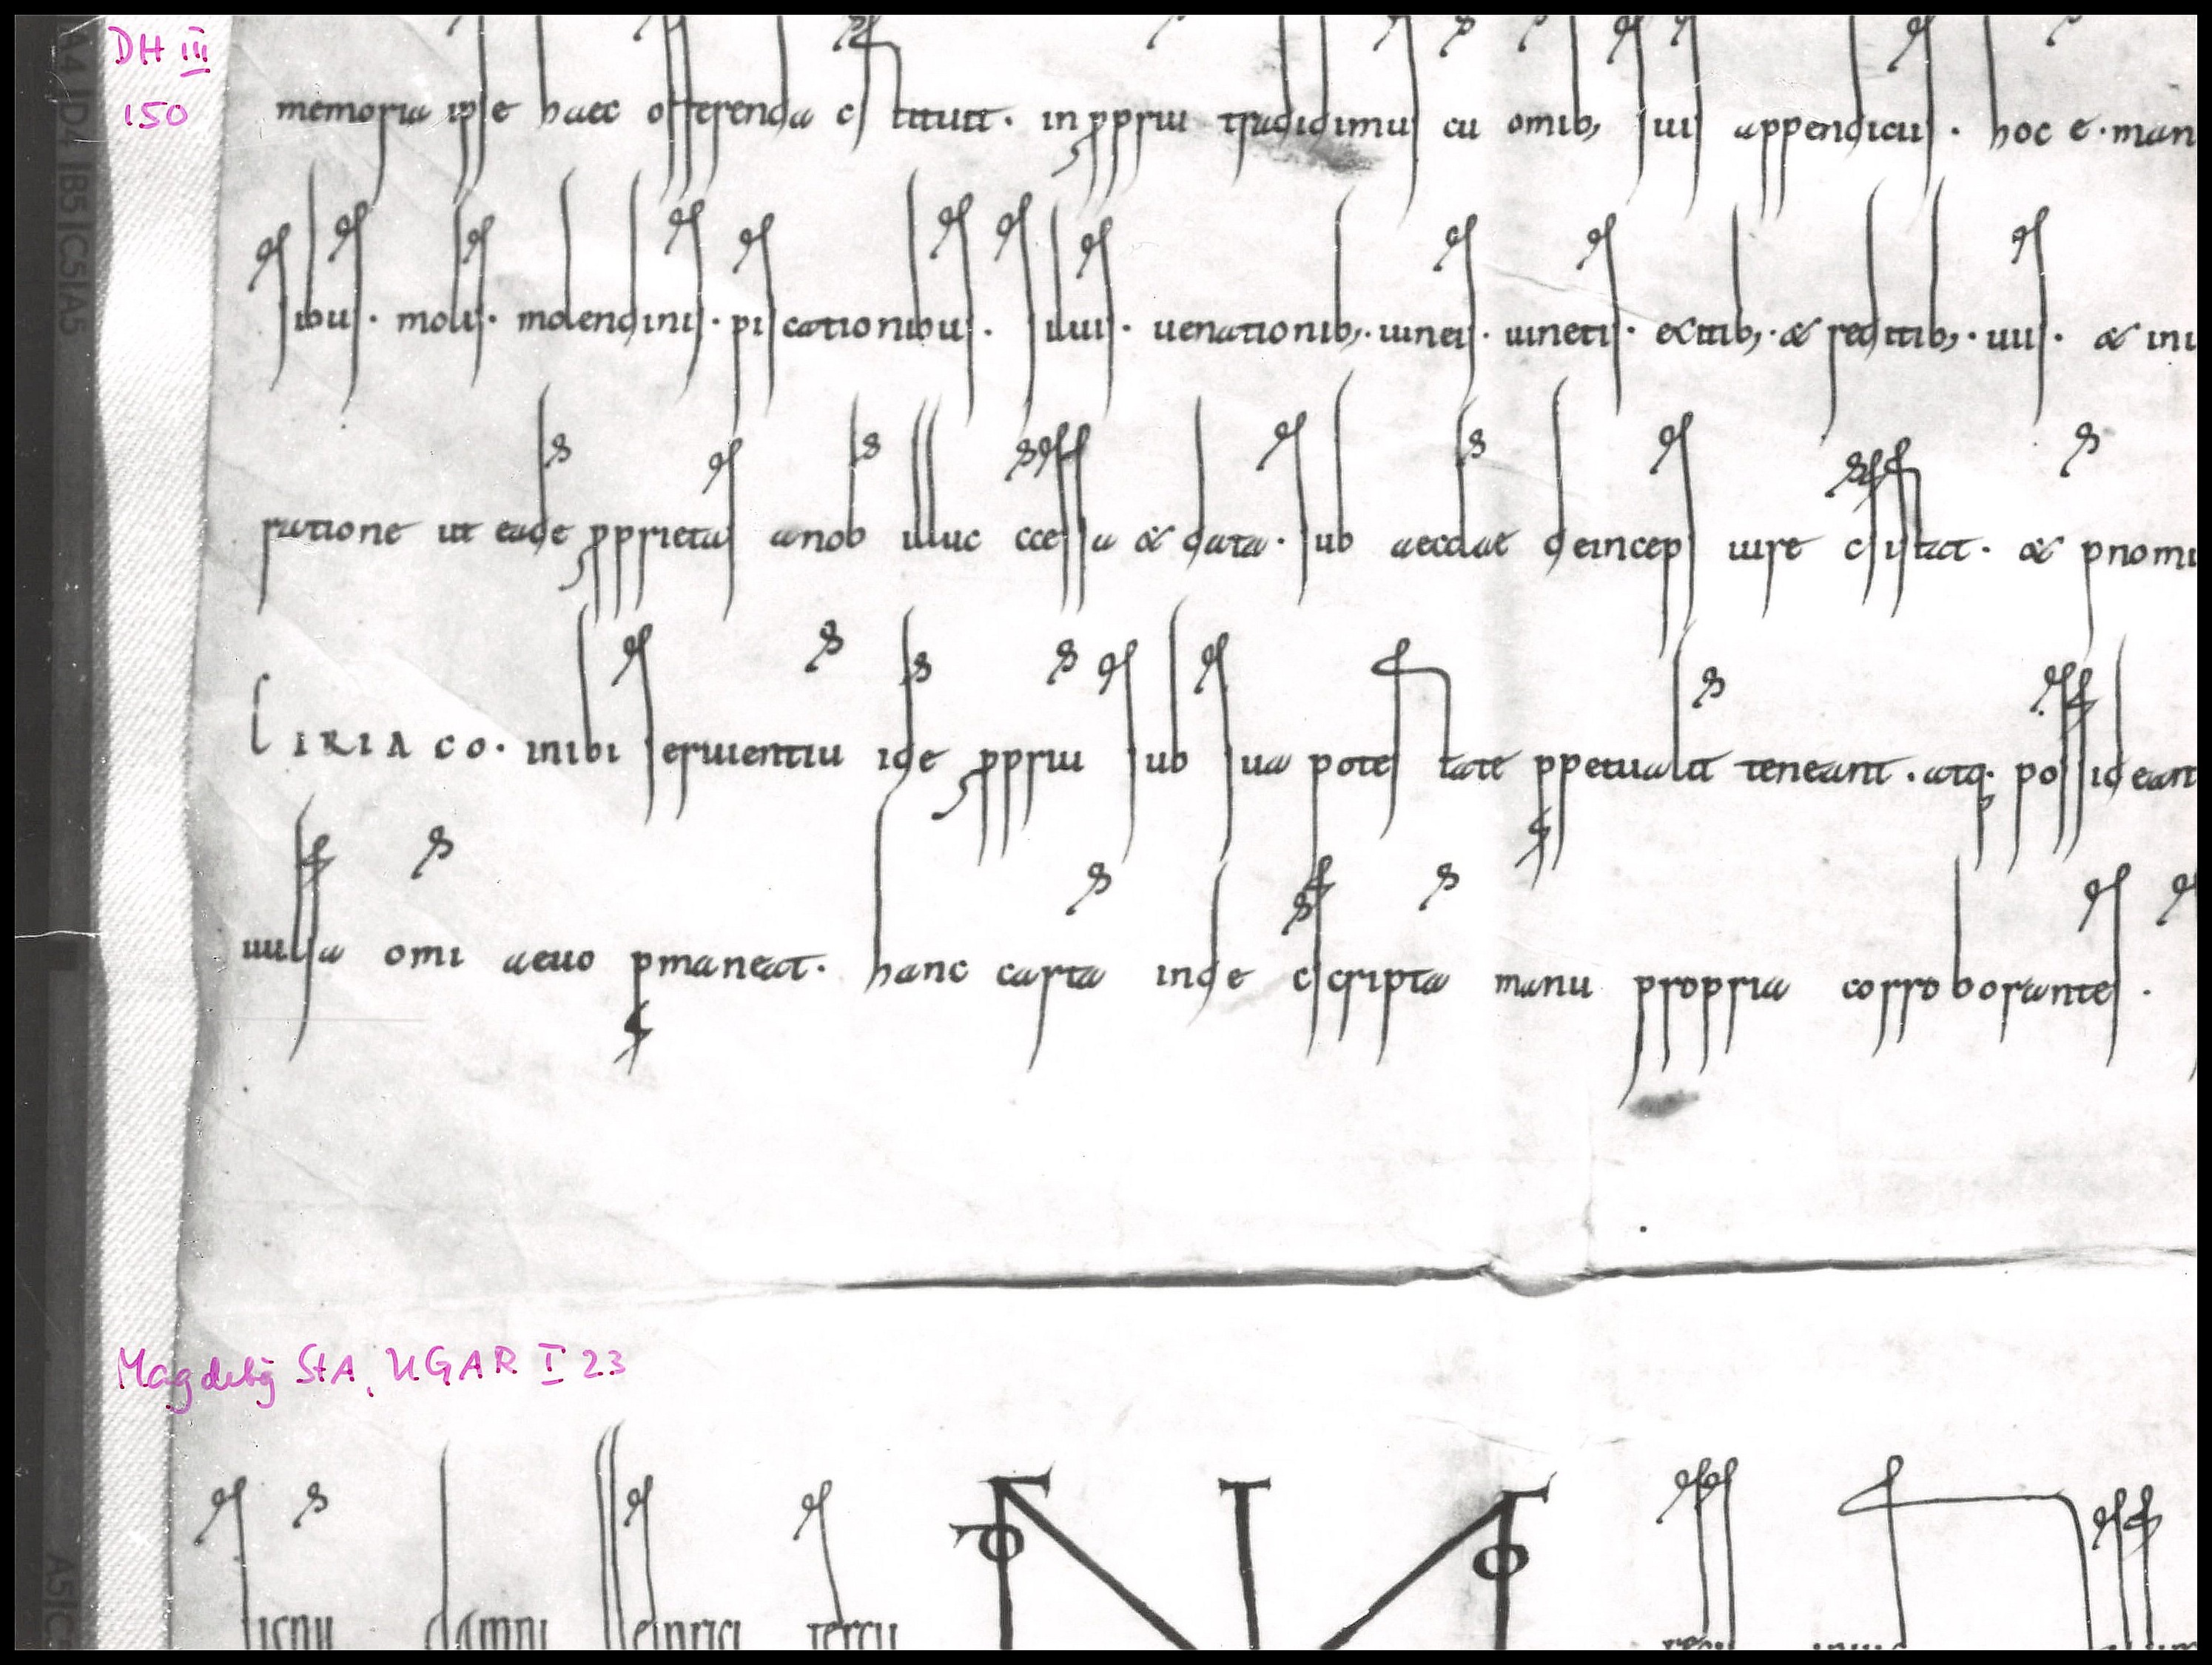 DH III
150
memoria ipse haec offerenda cstituit. in ppriu tradidimus cu omib; suis appendiciis. hoc e. man
sibus. molis. molendinis. piscationibus. siluis. uenationib;. uineis. uinetis. exitib;. & reditib;. uiis. & inu
ratione ut eade pprietas a nob illuc ccessa & data. sub aeccłae deinceps iure csistat. & pnomi
CIRIACO. inibi seruientiu ide ppriu sub sua potestate ppetualit teneant. atq; possideant
uulsa omi aeuo pmaneat. hanc carta inde cscripta manu propria corroborantes.
Magdebg StA, UGAR I 23
signu domni heinrici tercii